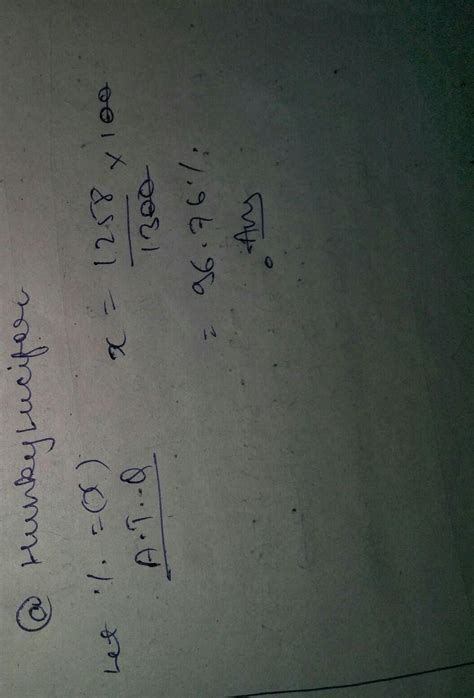 @ HunkyLucifar
Let % = (x)
A.T.Q
x = 1258/1300 × 100
= 96.76%
Ans